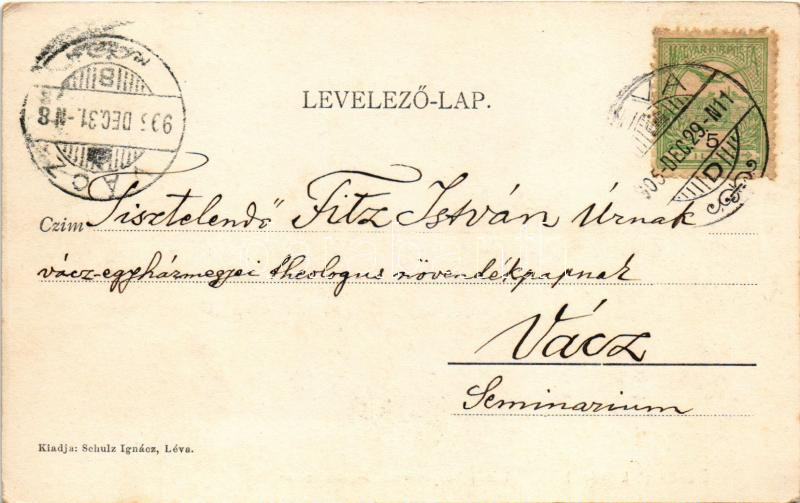 LEVELEZŐ-LAP.
MAGYAR KIR. POSTA
5
905-DEC.29-N11
D
905 DEC.31.-N8
VÁCZ
Czim Tisztelendő Fitz István Úrnak
vácz-egyházmegyei theologus növendékpapnak
Vácz
Seminarium
Kiadja: Schulz Ignácz, Léva.